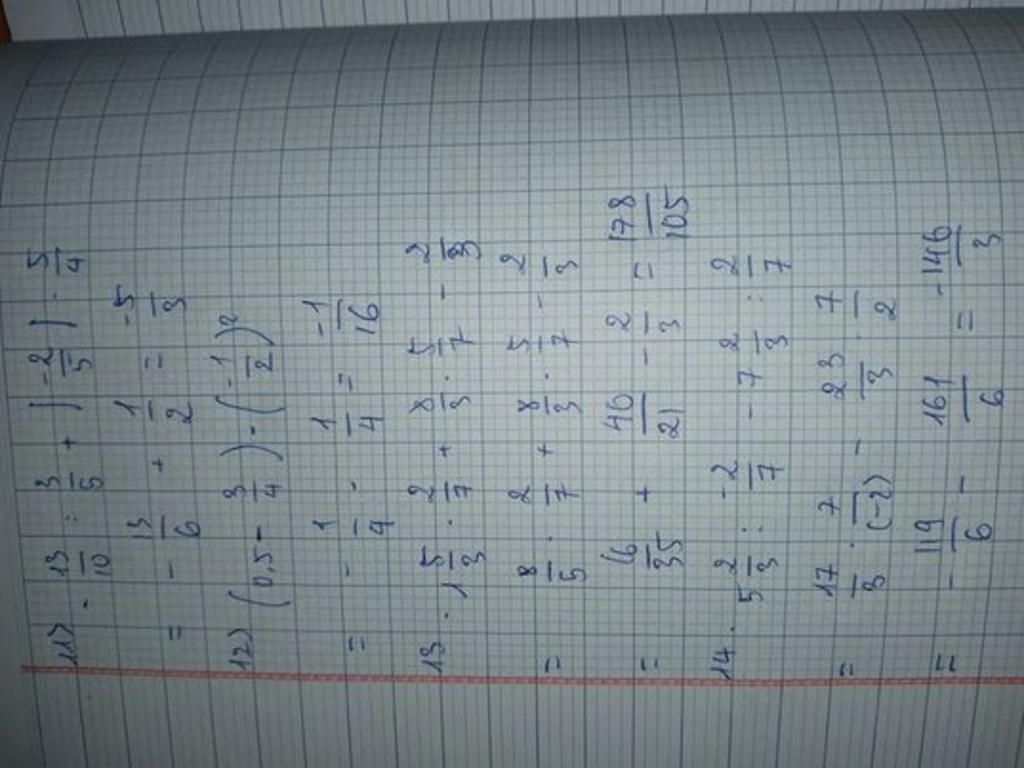 11) - 13/10 : 3/5 + |-2/5| . 5/4
= - 13/6 + 1/2 = -5/3
12) (0,5 - 3/4) . (-1/2)²
= - 1/4 . 1/4 = -1/16
13. 1 5/3 . 2/7 + 8/3 . 5/7 - 2/3
= 8/5 . 2/7 + 8/3 . 5/7 - 2/3
= 16/35 + 40/21 - 2/3 = 178/105
14. 5 2/3 : -2/7 - 7 2/3 : 2/7
= 17/3 . 7/(-2) - 23/3 . 7/2
= - 119/6 - 161/6 = -146/3